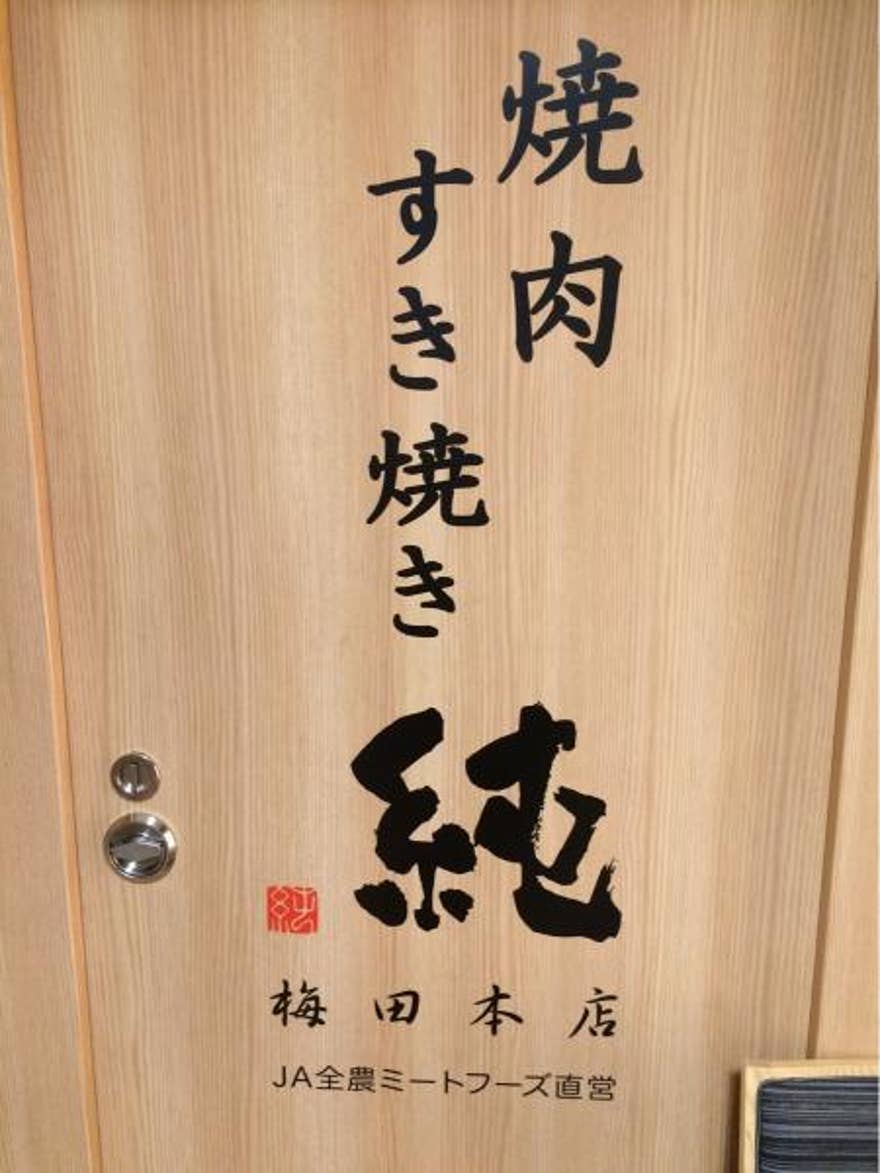 焼肉
すき焼き
純
純
梅田本店
JA全農ミートフーズ直営